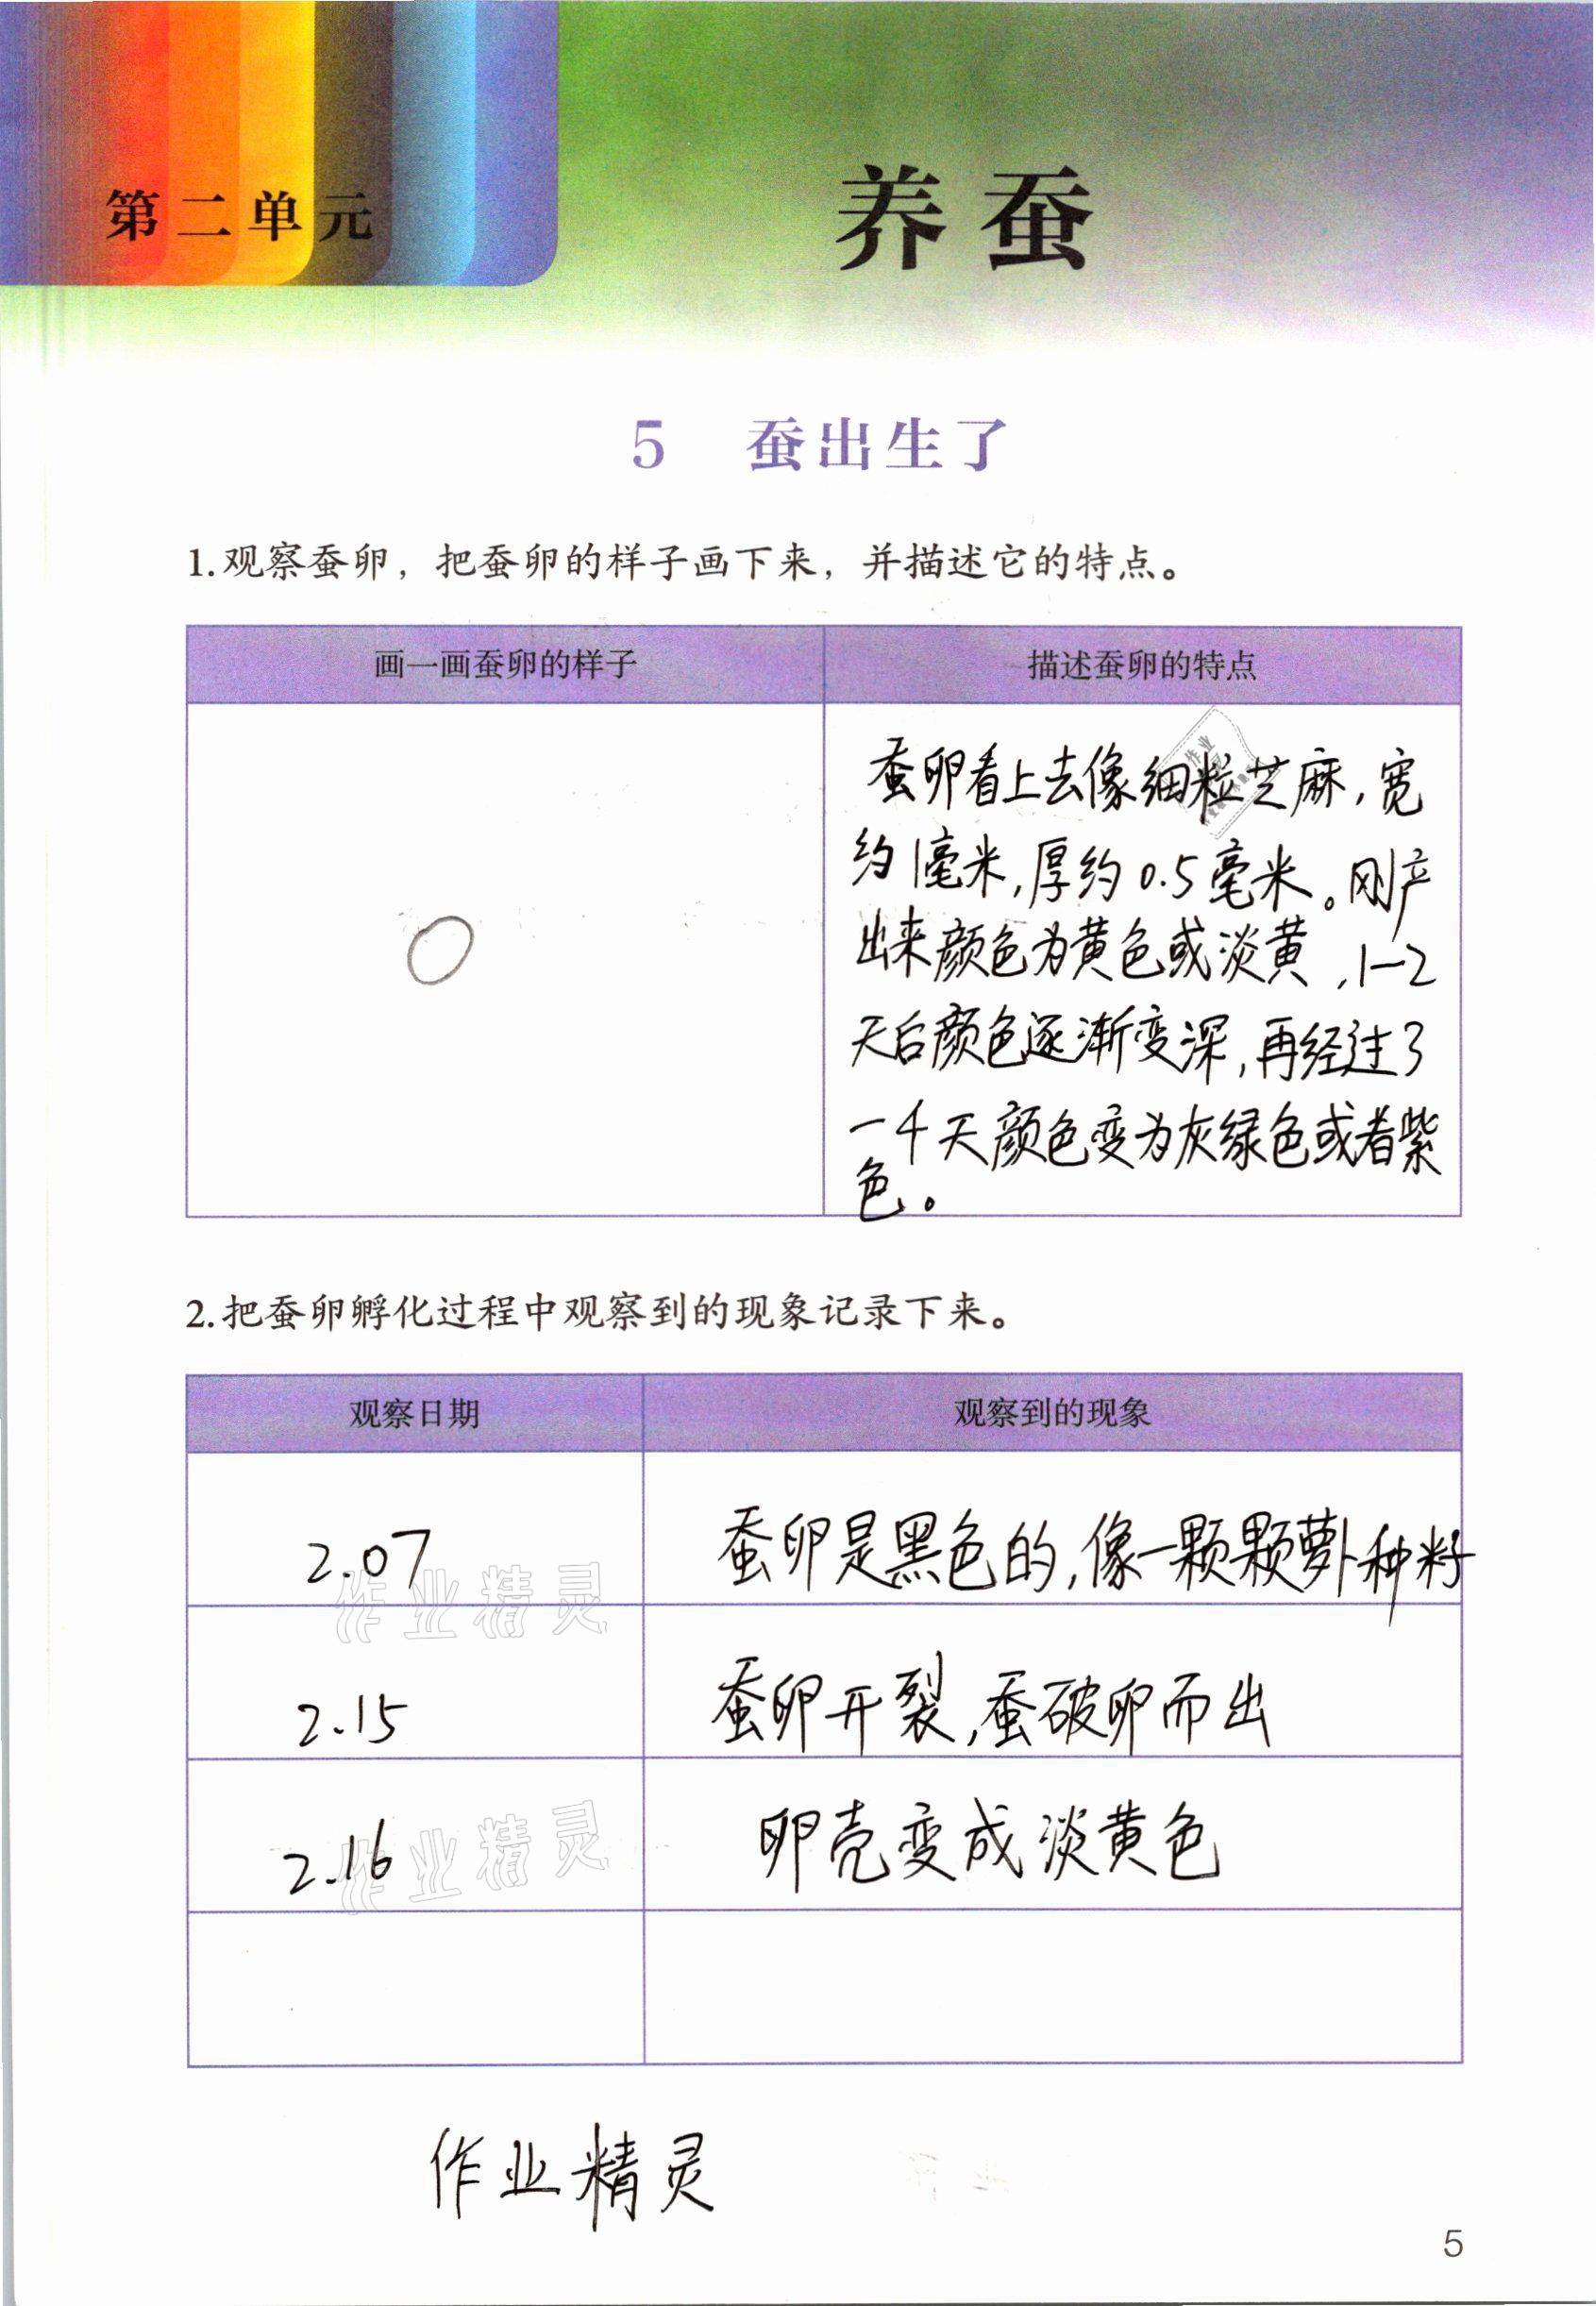 第二单元
养蚕
5 蚕出生了
1.观察蚕卵，把蚕卵的样子画下来，并描述它的特点。
画一画蚕卵的样子 描述蚕卵的特点
蚕卵看上去像细粒芝麻，宽
约1毫米，厚约0.5毫米。刚产
出来颜色为黄色或淡黄，1—2
天后颜色逐渐变深，再经过3
一4天颜色变为灰绿色或者紫
色。
2.把蚕卵孵化过程中观察到的现象记录下来。
观察日期 观察到的现象
2.07 蚕卵是黑色的，像一颗颗萝卜种籽
作业精灵
2.15 蚕卵开裂，蚕破卵而出
2.16 卵壳变成淡黄色
作业精灵
作业精灵
5